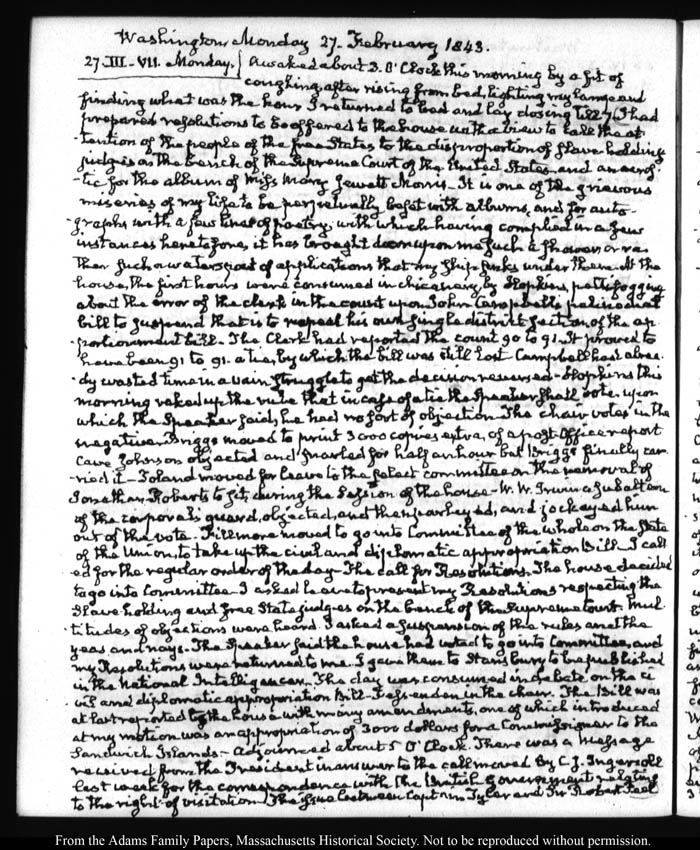 Washington, Monday 27. February 1843.
27. III.-VII. Monday. Awaked about 3. O'Clock this morning by a fit of
coughing, after rising from bed, lighting my lamp and
finding what was the hour I returned to bed and lay dosing till 7. I had
prepared resolutions to be offered to the house with a view to call the at-
-tention of the people of the free States to the disproportion of slave holding
judges on the bench of the Supreme Court of the United States and an acros-
-tic for the album of Miss Mary Jewett Morris. It is one of the grievous
miseries of my life to be perpetually beset with albums, and for auto-
-graphs with a few lines of poetry; with which having complied in a few
instances heretofore, it has brought down upon me such a shower or ra-
ther such a waterspout of applications that my ship sinks under them. At the
house, the first hours were consumed in chicanery, by Hopkins, pettifogging
about the error of the clerk in the count upon John Campbell's palinodial
bill to suspend that is to repeal his own single district section of the ap-
-portionment bill. The Clerk had reported the count 90 to 91. It proved to
have been 91 to 91. a tie, by which the bill was still lost Campbell had alrea-
-dy wasted time in a vain struggle to get the decision reversed. Hopkins this
morning raked up the rule that in case of a tie the Speaker shall vote, upon
which the Speaker said, he had no sort of objection. The chair votes in the
negative. Briggs moved to print 3000 copies extra, of a post-Office report
Cave Johnson objected and snarled for half an hour but Briggs finally car-
-ried it. Toland moved for leave to the select committee on the removal of
Jonathan Roberts to sit, during the Session of the house. W. W. Irwin a subaltern
of the corporal's guard, objected, and then parleyed, and jockeyed him
out of the vote. Fillmore moved to go into Committee of the whole on the State
of the Union, to take up the civil and diplomatic appropriation Bill. I call-
-ed for the regular order of the day. The call for Resolutions. The house decided
to go into Committee. I asked leave to present my Resolutions respecting the
Slave holding and free State judges on the bench of the Supreme Court. Mul-
-titudes of objections were heard. I asked a suspension of the rules and the
yeas and nays. The Speaker said the house had voted to go into Committee, and
my Resolutions were returned to me. I gave them to Stansbury to be published
in the National Intelligencer. The day was consumed in debate on the ci-
-vil and diplomatic appropriation Bill. Fessenden in the chair. The Bill was
at last reported to the house with many amendments, one of which introduced
at my motion was an appropriation of 3000 dollars for a Commissioner to the
Sandwich Islands. Adjourned about 5 O'Clock. There was a Message
received from the President in answer to the call moved by C. J. Ingersoll
last week for the correspondence with the British Government relating
to the right of visitation. The issue between Captain Tyler and Sir Robert Peel
From the Adams Family Papers, Massachusetts Historical Society. Not to be reproduced without permission.